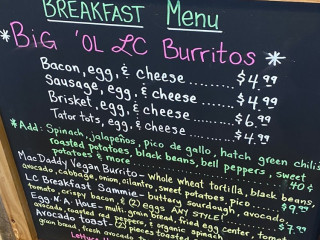 BREAKFAST Menu
*BiG 'OL LC Burritos*
Bacon, egg, & cheese ........ $4.99
Sausage, egg, & cheese ...... $4.99
Brisket, egg, & cheese ...... $6.99
Tator tots, egg, & cheese ... $4.99
*Add: Spinach, jalapeños, pico de gallo, hatch green chilis
roasted potatoes, black beans, bell peppers, sweet
potatoes & more 40¢
MacDaddy Vegan Burrito - whole wheat tortilla, black beans,
avocado, cabbage, onion, cilantro, sweet potatoes, pico $9.99
LC Breakfast Sammie - buttery sourdough, avocado,
tomato, crispy bacon, & (2) eggs ANY STYLE! $7.99
Egg·N·A·Hole - multi-grain bread, fried egg center, tomato
avocado, roasted red peppers, & organic spinach
Avocado Toast - (2) pieces toasted
grain bread, fresh avocado